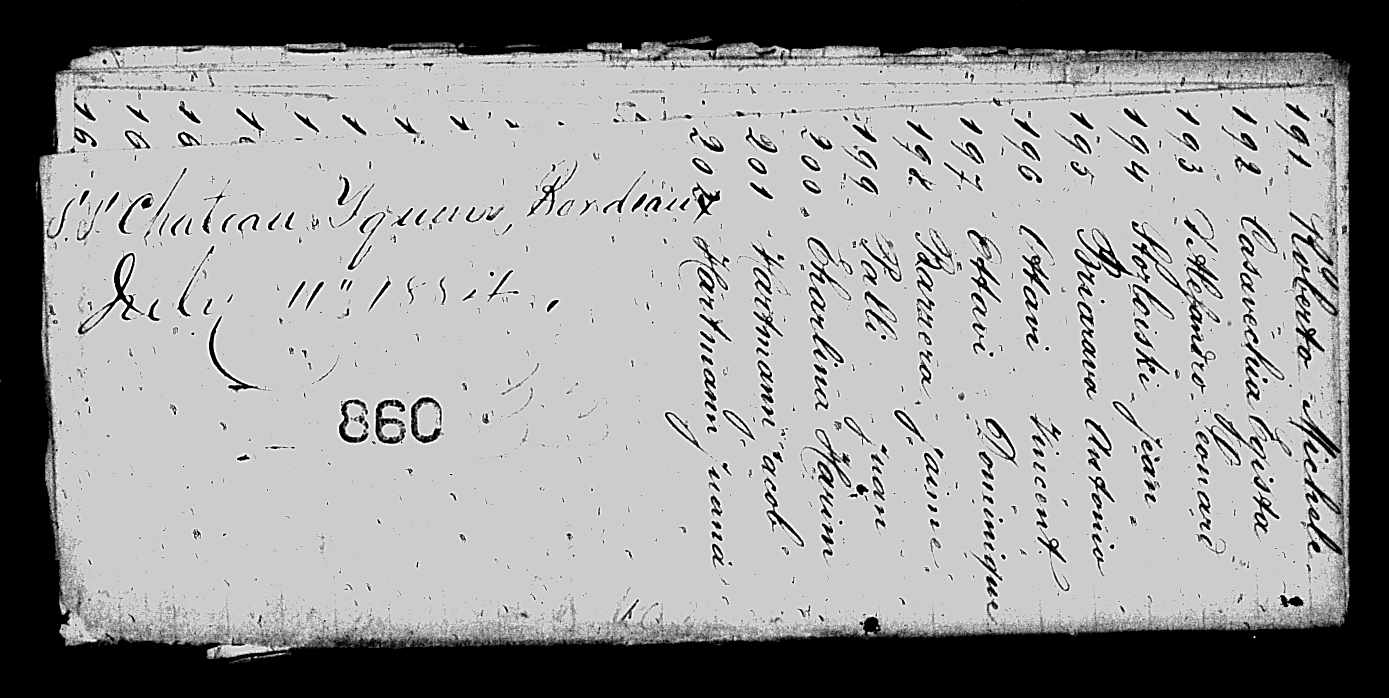 S.S. Chateau Yquem, Bordeaux
July 11" 188
860
191. Roberto Michele.
192 Casavechia Egista
193 D'Alejandro Leonard
194 Stoloiski Jean
195 Briarava Antonio
196 Ottavi Vincent
197 Ottavi Dominique
198 Barrera Jaime.
199 Balli Juan
200 Charlina Harim
201 Hartmann Jacob.
202 Hartmann Juana.